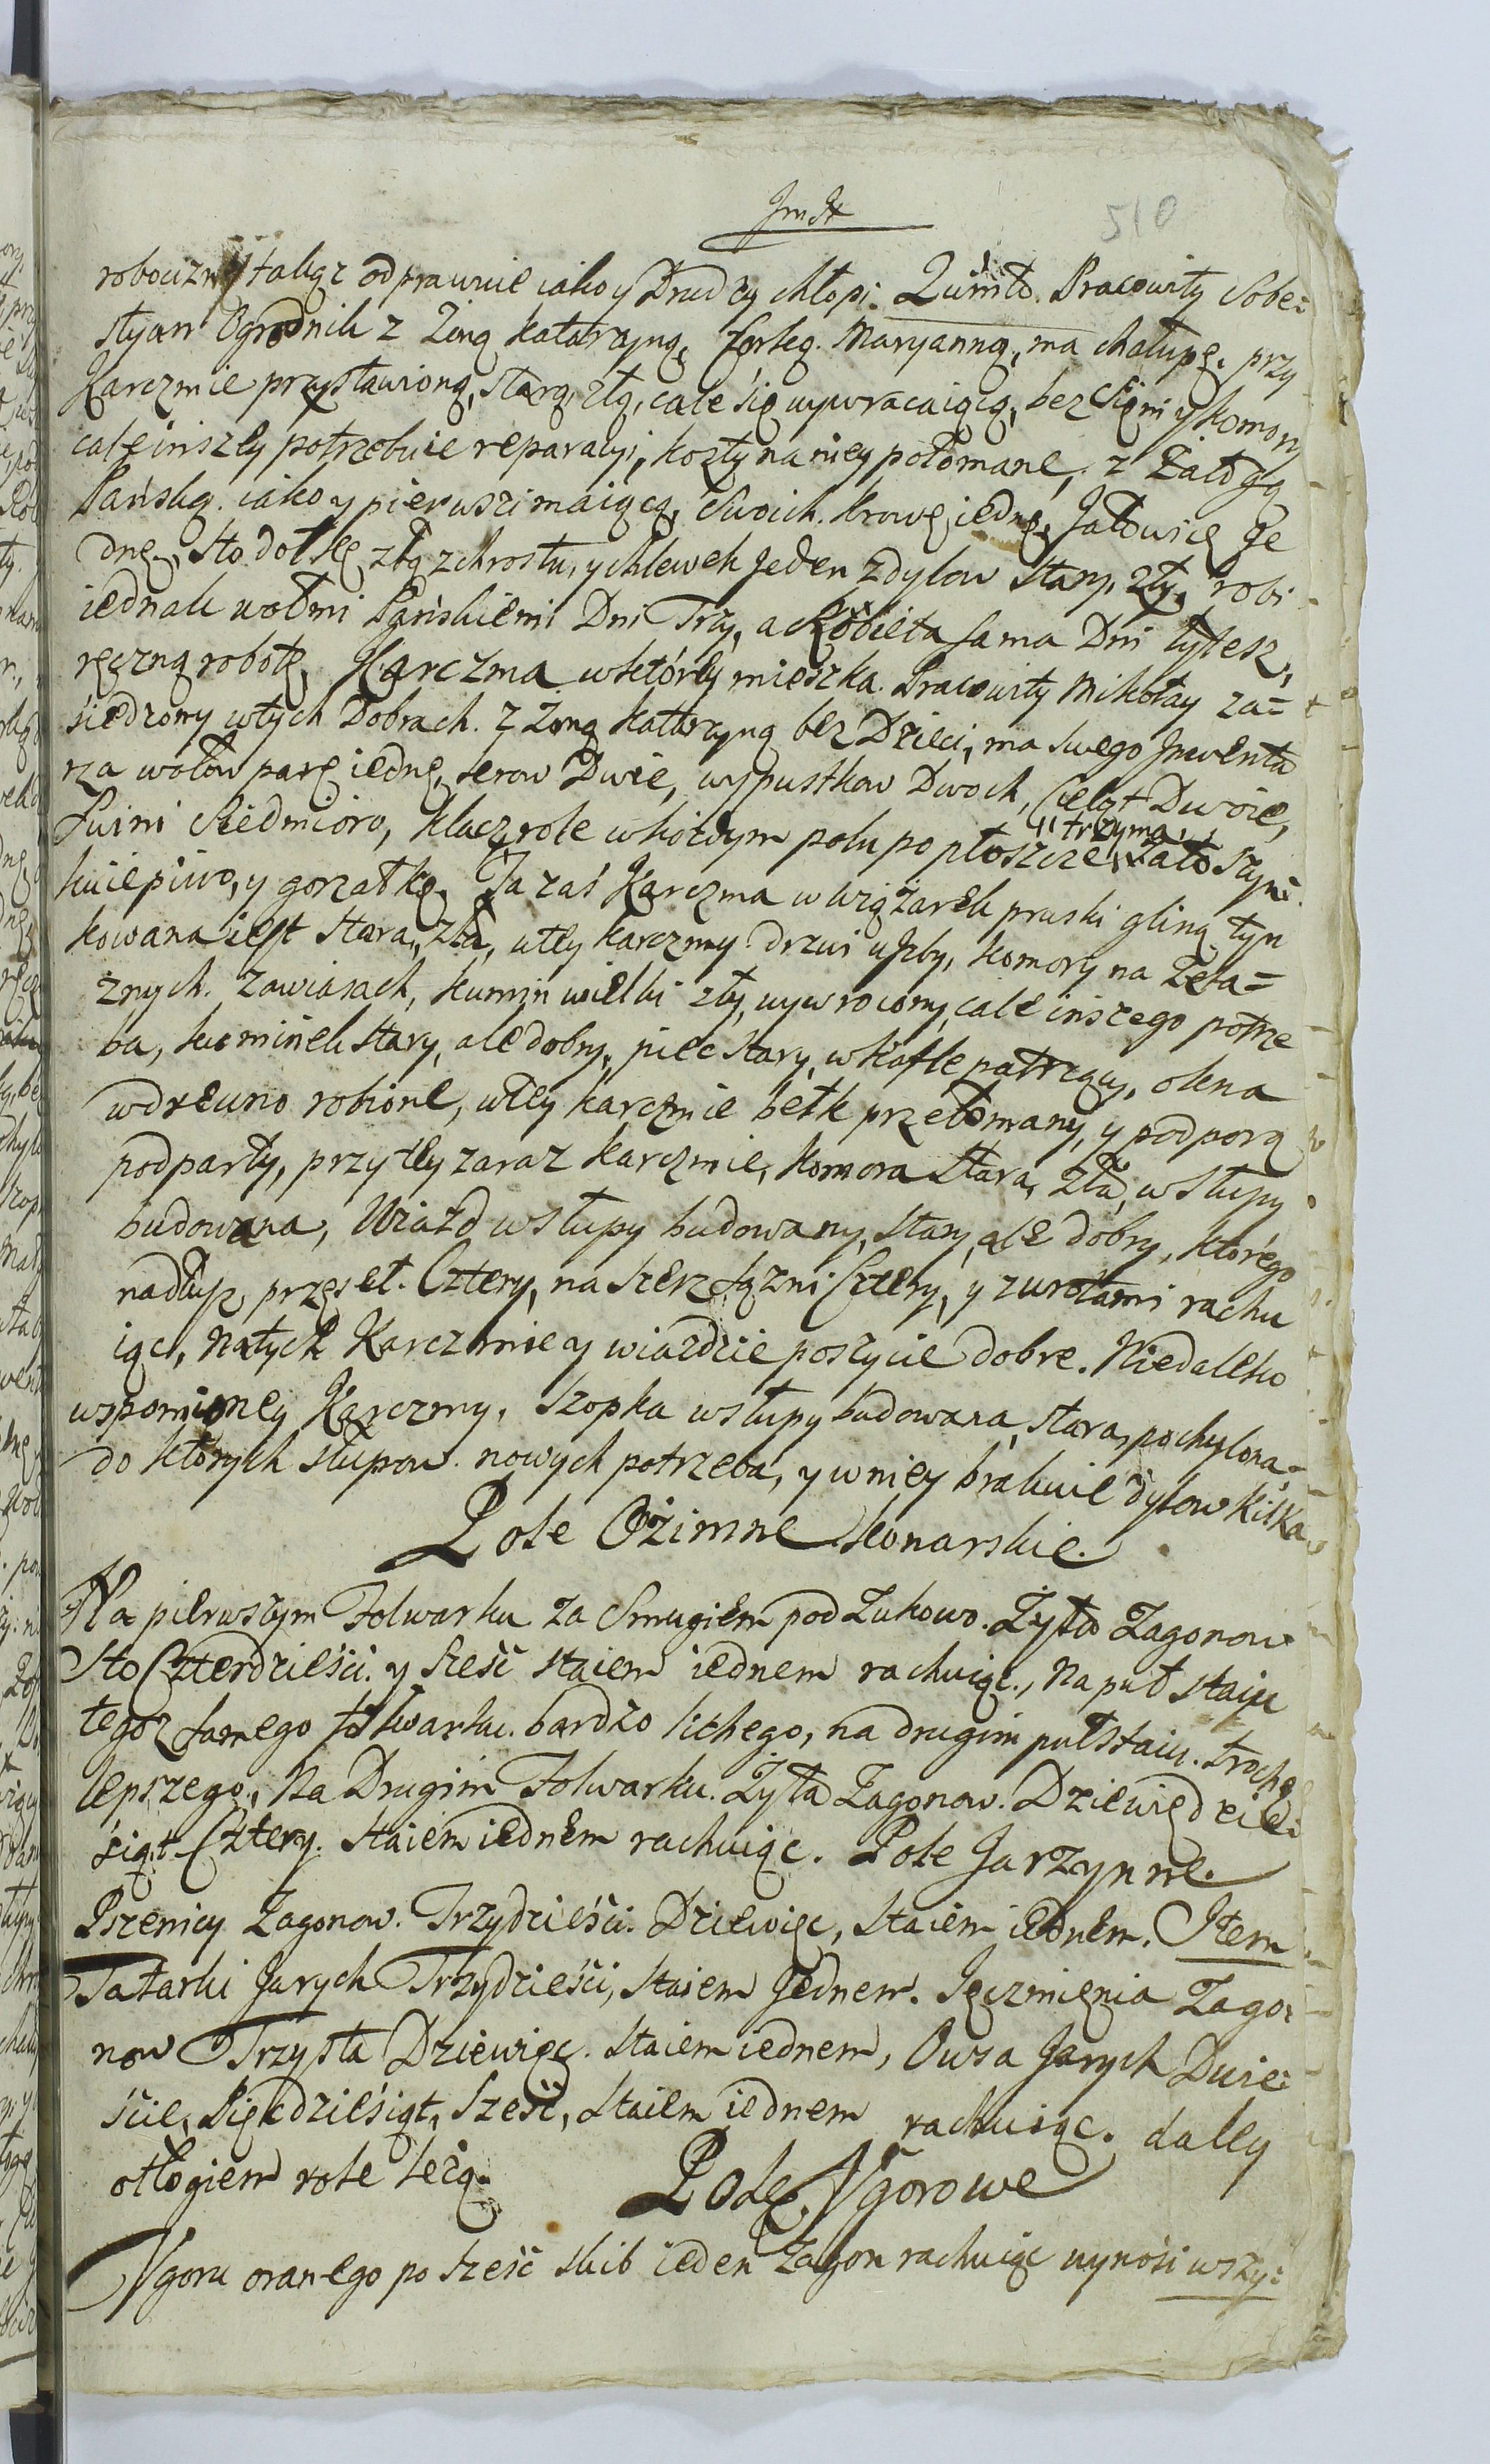 510
robociznę takąz odprawuie iako y Drudzy chłopi. Quinto. Pracowity Sobe=
styan Ogrodnik z Zoną Katarzyną, Corką. Maryanną, ma chałupę. przy
Karczmie przystawioną, starą, złą, cale się wywracaiącą, bez Sięni y komory
cale inszey potrzebuie reparacyi, kozły na niey połomane, z Załogą
Pańską. iako y pierwszi maiącą, Swoich. krowę iednę, Jałowicę Je
dnę, Stodołkę złą z chrostu, y chlewek Jeden z dylow stary, zły, robi
iednak wołmi Pańskiemi Dni Trzy, a Kobieta sama Dni tylesz,
ręczną robotę, Karczma w ktorey mieszka. Pracowity Mikołay za=
siedzony w tych Dobrach. z Zoną Katarzyną bez Dzieci, ma swego Jnwenta
rza wołow parę iednę, krow Dwie, wypustkow Dwoch, Cieląt Dwoie,
Swini Siedmioro, klacz role w kozdym polu po płoszcze trzyma, Za to szyn=
kuie piwo, y gorzałkę. Ta zaś Karczma w wiązarek pruski gliną tyn
kowana iest stara, zła, u tey karczmy drzwi u Jzby, komory na Zela=
znych. zawiasach, kumin wielki zły, wywrocony, cale inszego potrze
ba, kominek stary, ale dobry, piec stary, w kafle patrzący, okna
w drewno robione, w tey karczmie belk przełomany, y podporą
podparty, przy tey zaraz karczmie, komora stara, zła, w słupy
budowana, Wiazd w słupy budowany, stary, ale dobry, ktorego
nadłusz przęseł. Cztery, na szerz sązni Cztery, y z wrotami rachu
iąc, na tych Karczmie y wiazdzie poszycie dobre. Niedaleko
wspomioney Karczmy, szopka w słupy budowana, stara, pochylona=
do ktorych słupow. nowych potrzeba, y w niey brakuie dylow kilka.
Pole Ozimne Konarskie.
Na pierwszym Folwarku za Smugiem pod Zukowo. Zyta Zagonow
Sto Czterdzieści. y sześć staiem iednem rachuiąc, Na puł staiu
tegoz samego folwarku. bardzo lichego, na drugim puł staiu. trochę
lepszego, Na Drugim Folwarku. Zyta Zagonow. Dziewiędzie=
siąt Cztery. staiem iednem rachuiąc. Pole Jarzynne.
Pszenicy Zagonow. Trzydzieści. Dziewięc, staiem iednem. Jtem
Tatarki Jarych Trzydzieści, staiem Jednem. Jęczmięnia Zago=
now Trzysta Dziewięc. staiem iednem, Owsa Jarych Dwie=
ście, Pięcdziesiąt, Sześć, staiem iednem rachuiąc. daley
otłogiem role leżą. Pole Vgorowe
Vgoru oranego po sześć skib ieden Zagon rachuiąc wynosi wszy=